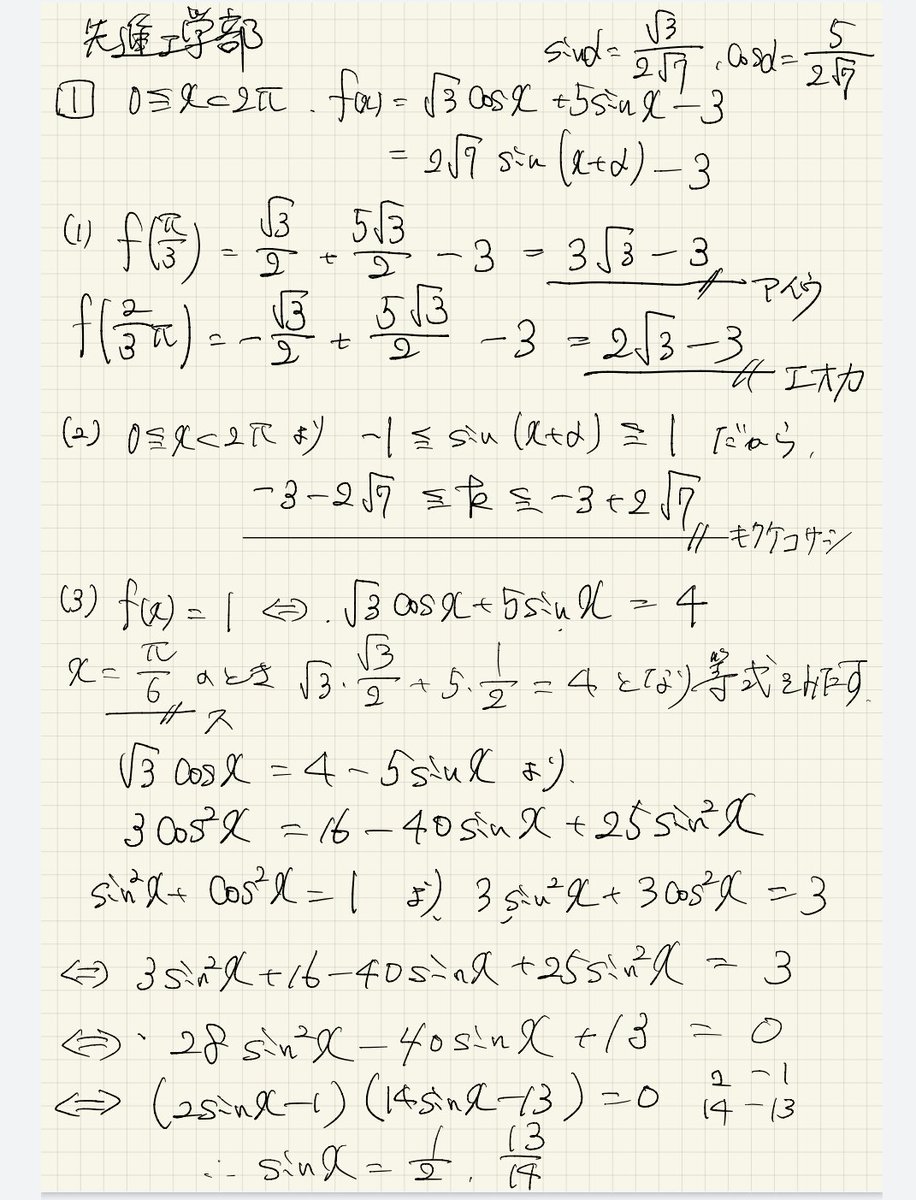 先進工学部
sinα = √3/2√7, cosα = 5/2√7
1 0≦x<2π. f(x) = √3 cosx + 5sinx - 3
= 2√7 sin(x+α) - 3
(1) f(π/3) = √3/2 + 5√3/2 - 3 = 3√3 - 3 アイウ
f(2/3 π) = -√3/2 + 5√3/2 - 3 = 2√3 - 3 エオカ
(2) 0≦x<2π より -1 ≦ sin(x+α) ≦ 1 だから,
-3-2√7 ≦ k ≦ -3+2√7 キクケコサシ
(3) f(x) = 1 ⇔ √3 cosx + 5sinx = 4
x = π/6 のとき √3・√3/2 + 5・1/2 = 4 となり等式をみたす.
ス
√3 cosx = 4 - 5sinx より.
3cos²x = 16 - 40sinx + 25sin²x
sin²x + cos²x = 1 より 3sin²x + 3cos²x = 3
⇔ 3sin²x + 16 - 40sinx + 25sin²x = 3
⇔ 28sin²x - 40sinx + 13 = 0
⇔ (2sinx-1)(14sinx-13) = 0 2 -1
14 -13
∴ sinx = 1/2, 13/14